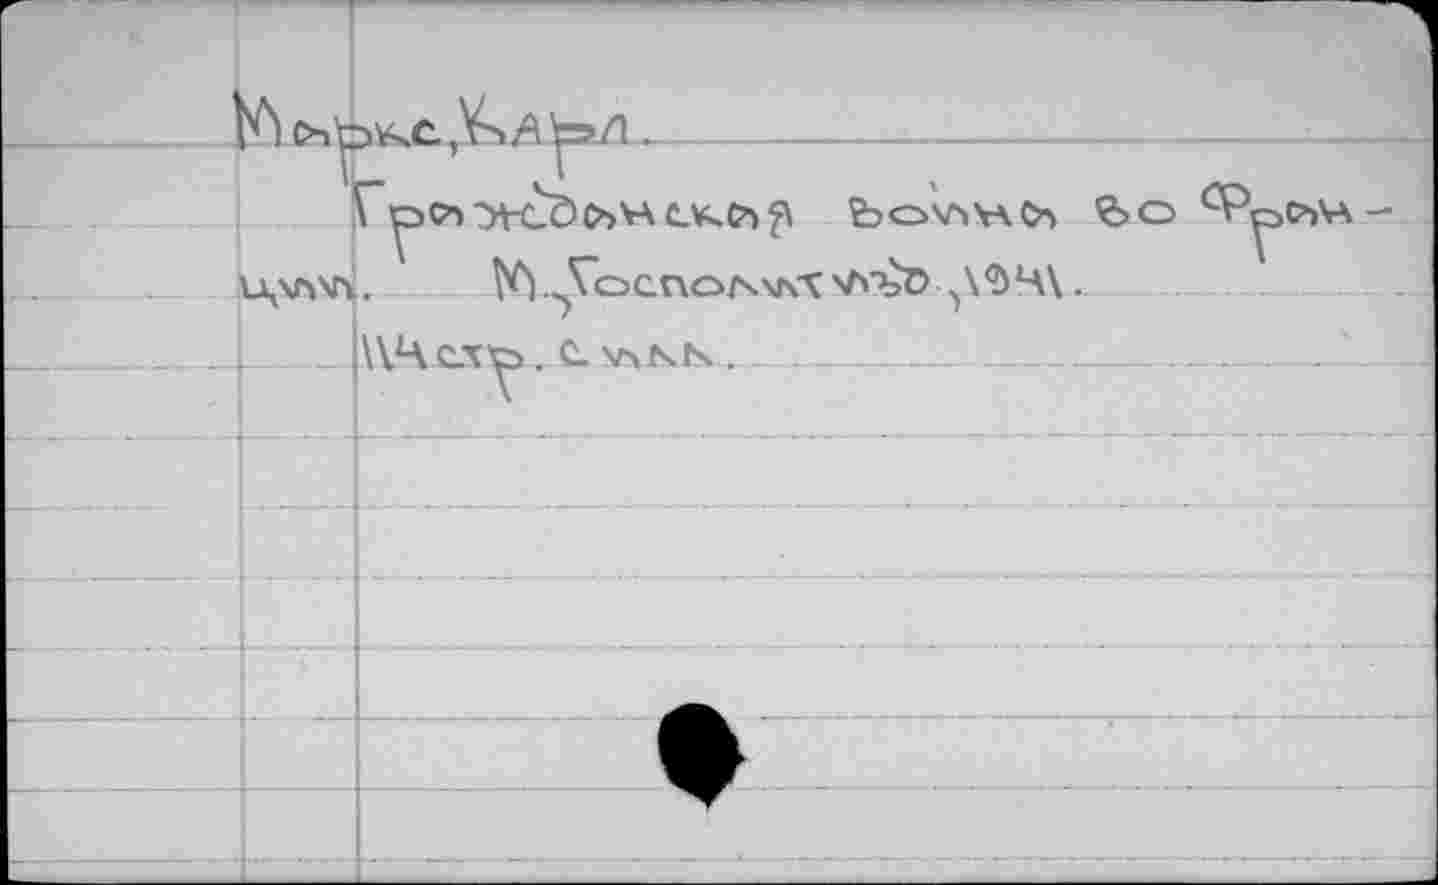 Маркс, Карл.
Гражданская война во Фран-
ции. М., Госполитизд., 1941.
114 стр. с илл.